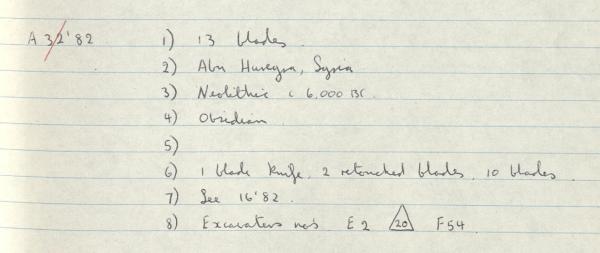 A 32'82 1) 13 blades.
2) Abu Hureyra, Syria
3) Neolithic c 6,000 BC.
4) Obsidian.
5)
6) 1 blade knife, 2 retouched blades, 10 blades.
7) See 16'82.
8) Excavators no's E2 20 F54